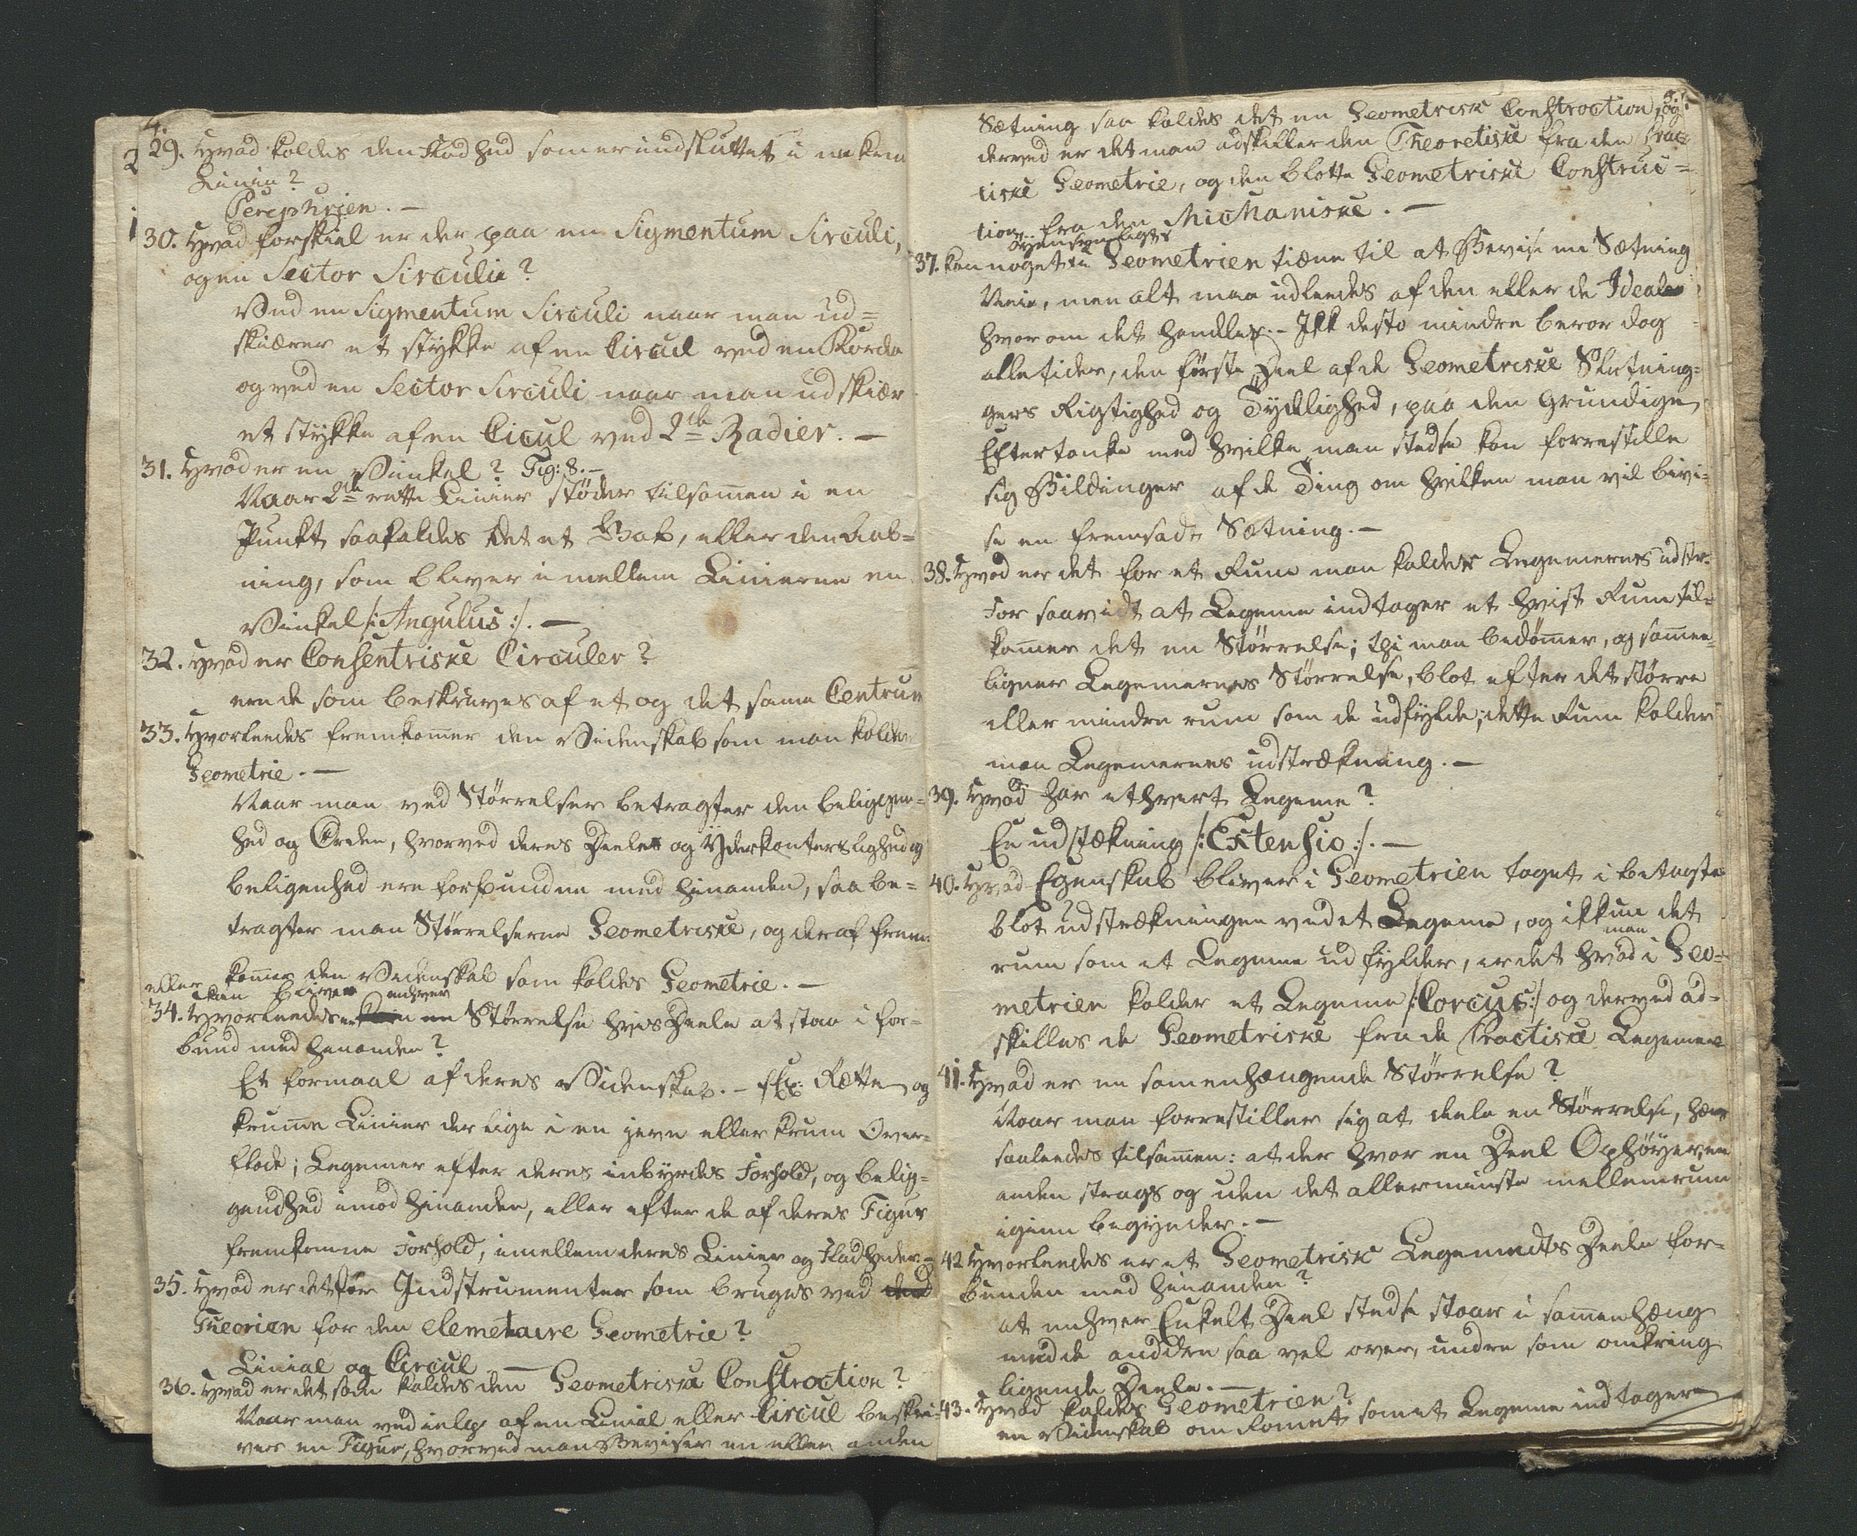 4.
29. Hvad kaldes den Fladhed som er indsluttet i en krum
Linie?
Perephirien. —
30. Hvad forskiel er der paa en Sigmentum Sirculi,
og en Sector Sirculie?
Ved en Sigmentum Sirculi naar man ud=
skiærer et stykke af en Circul ved en Korda
og ved en Sector Sirculi naar man udskiær
et stykke af en Cicul ved 2de Radier. —
31. Hvad er en Vinkel? Fig: 8. —
Naar 2de rette Linier støder tilsamen i en
Punkt saa kaldes det et Gab, eller den Aab=
ning, som bliver imellem Linierne en
Vinkel /: Angulus :/. —
32. Hvad er Consentriske Circuler?
ere de som beskrives af et og det same Centrum
33. Hvorleedes fremkomer den Videnskab som man kalder
Geometrie. —
Naar man ved Størrelser betragter den beliggen=
hed og Orden, hvorved deres Deele og Yderkanters lighed og
beligenhed ere forbundne med hinanden, saa be=
tragter man Størrelserne Geometriske, og deraf frem
komer den Videnskab som kaldes Geometrie. —
eller kan bliver enhver
34. Hvorleedes er en Størrelse hvis Deele at staa i for=
bund med hinanden?
Et formaal af deres Videnskab. — f Ex: Rette og
krumme Linier der lige i en jevn eller krum Over=
flade; Legemer efter deres inbyrdes Forhold, og belig=
gendhed imod hinanden, eller efter de af deres Figur
fremkomne Forhold, imellem deres Linier og Fladheder. —
35. Hvad er det for Indstrumenter som bruges ved den
Theorien for den elemetaire Geometrie?
Linial og Circul —
36. Hvad er det som kaldes den Geometriske Constroction?
Naar man ved ielp af en Linial eller Circul beskri=
ver en Figur, hvorved man Beviser en eller anden
5.
Sætning saa kaldes det en Geometrisk Constroction, og
derved er det man adskiller den Theoretiske fra den Prac=
tiske Geometrie, og den blotte Geometriske Construc=
tion fra den Michaniske. —
Øyensynligts
37. Kan noget i Geometrien tiæne til at Bevise en Sætning
Neie, men alt maa udleedes af den eller de Ideale
hvorom det handles. — Ikk desto mindre beror dog
alletider, den første Deel af de Geometriske Slutnin=
gers Rigtighed og Tydelighed, paa den grundige
Eftertanke med hvilke man stedse kan forrestille
sig Bildinger af de Ting om hvilken man vil bevi=
se en fremsadt Sætning. —
38. Hvad er det for et Rum man kalder Legemernes udstr.
For saavidt at Legeme indtager et hvist Rum til=
komer det en Størrelse; thi man bedømer, og samen=
ligner Legemernes Størrelse, blot efter det større
eller mindre rum som de udfylde; dette Rum kalder
man Legemernes udstrækning. —
39. Hvad har ethvert Legeme?
En udstækning /: Extensio :/. —
40. Hvad Egenskab bliver i Geometrien taget i betagte
blot udstrækningen ved et Legeme, og ikkun det
man
rum som et Legeme udfylder, er det hvad i Geo=
metrien kalder et Legeme /: Corcus :/ og derved ad=
skilles de Geometriske fra de Practiske Legemer
41. Hvad er en samenhængende Størrelse?
Naar man forrestiller sig at deele en Størrelse, hæn
saaleedes tilsamen: at der hvor en Deel Ophøyer, en
anden strags og uden det allerminste mellemrum
igien begynder. —
42 Hvorleedes er et Geometrisk Legemedts Deele for=
bunden med hinanden?
at enhver Enkelt Deel stedse staar i samenhæng
med de andden saa vel over, undre som omkring
ligende Deele. —
43. Hvad kaldes Geometrien?
en Videnskab om Romet som et Legeme indtager